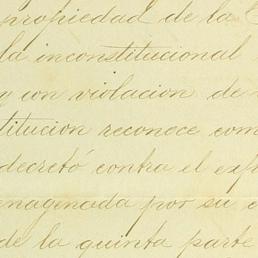 propiedad de la
la inconstitucional
y con violacion de
titucion reconoce com
decretó contra el exp
enagenada por su
de la quinta parte